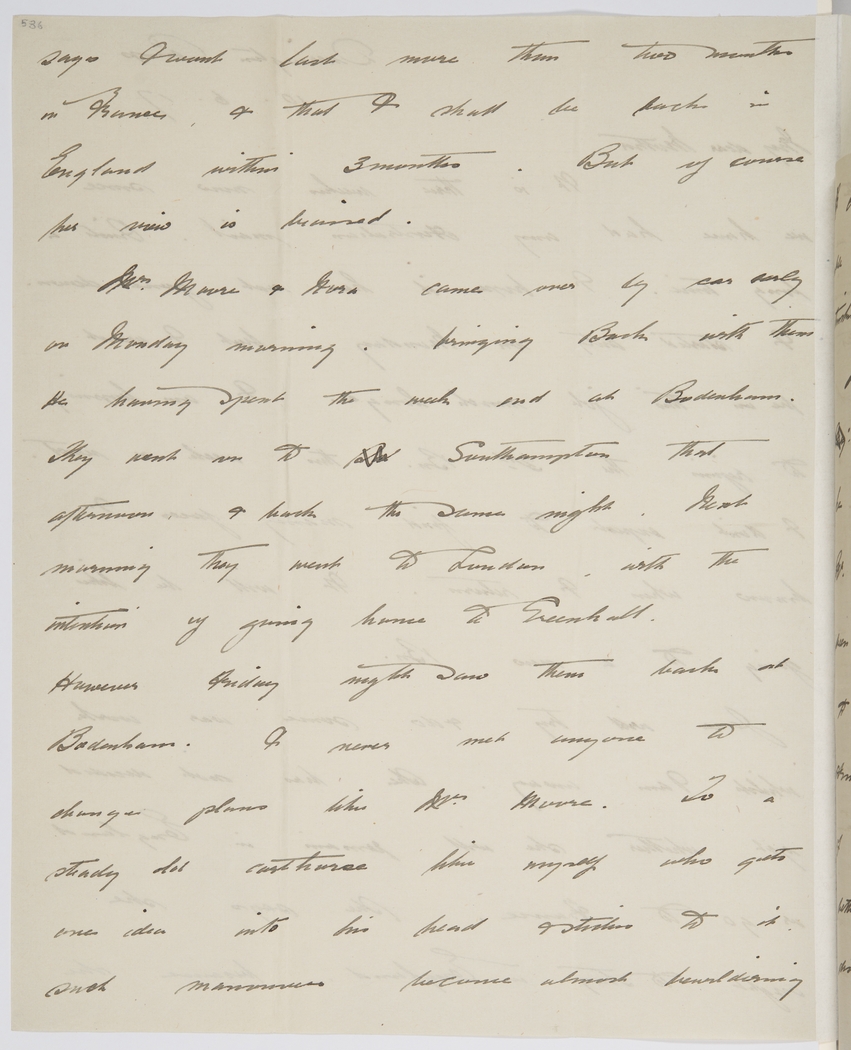 586
says I wont last more than two months
in France, & that I shall be back in
England within 3 months. But of course
her view is biassed.
Mrs Moore & Nora came over by car early
on Monday morning. bringing Back with them
He having spent the week end at Bodenham.
They went on to Southampton that
afternoon & back the same night. Next
morning they went to London, with the
intention of going home to Greenhall.
However Friday night saw them back at
Bodenham. I never met anyone to
change plans like Mrs Moore. To a
steady old carthorse like myself who gets
one idea into his head & sticks to it.
such manoeuvres become almost bewildering